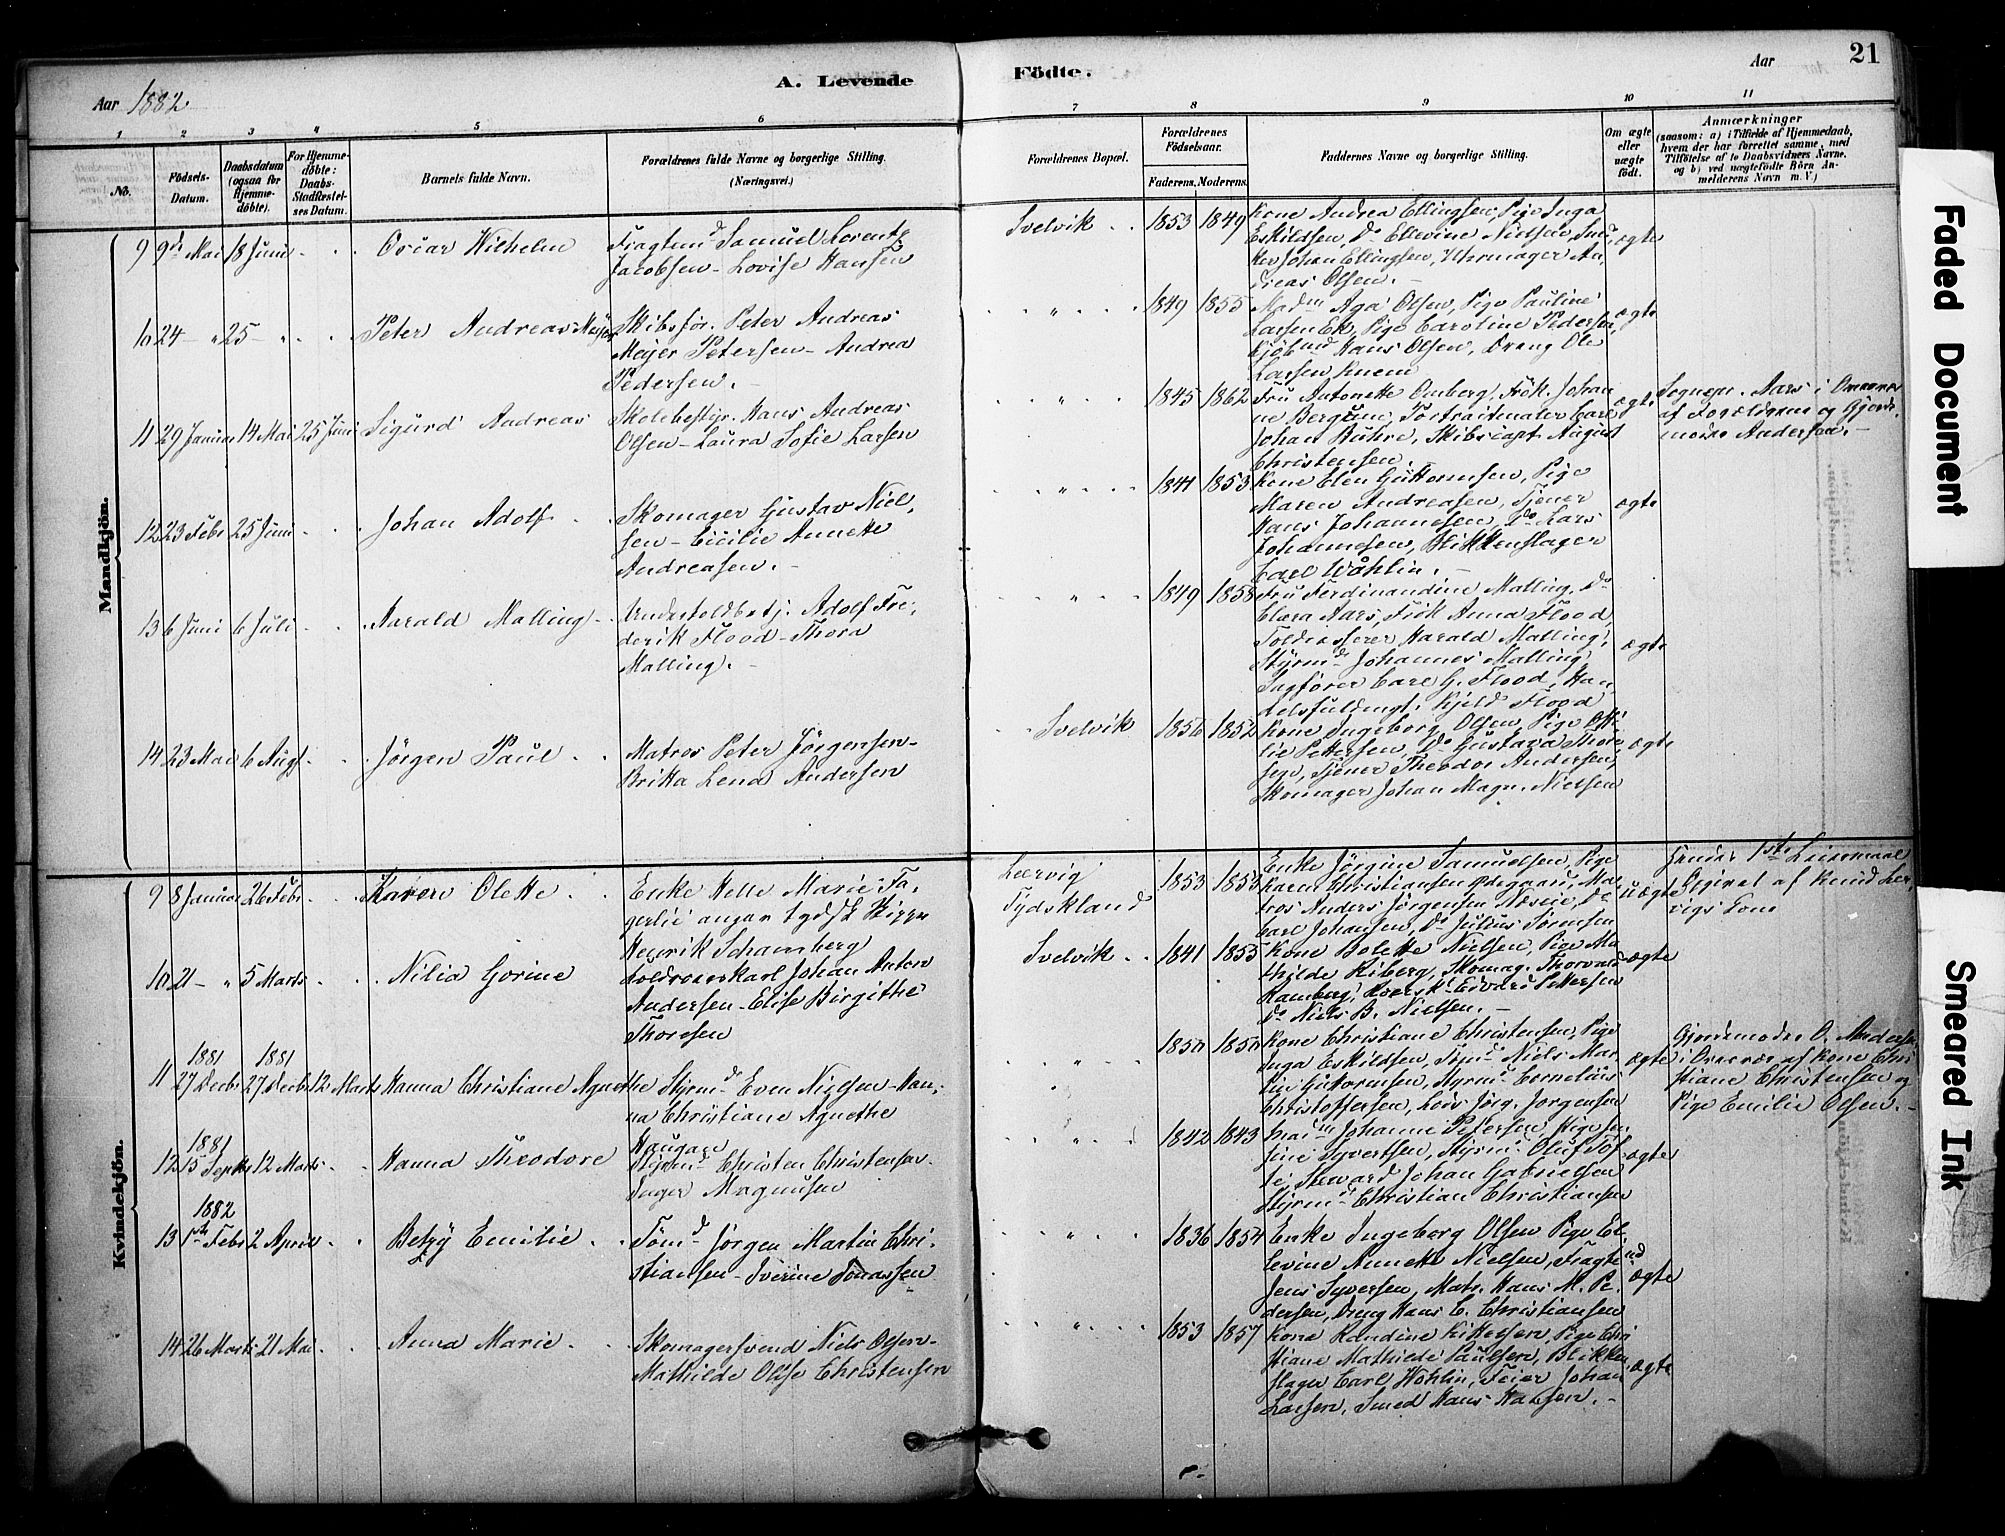 21
Aar 1882.
A. Levende
Födte.
Aar
1
2
3
4
5
6
7
8
9
10
11
No.
Födsels-
Datum.
Daabsdatum
(ogsaa for
Hjemme-
döbte).
For Hjemme-
döbte:
Daabs-
Stadfæstel-
ses Datum.
Barnets fulde Navn.
Forældrenes fulde Navne og borgerlige Stilling.
(Næringsvei.)
Forældrenes Bopæl.
Forældrenes
Födselsaar.
Faderens. Moderens.
Faddernes Navne og borgerlige Stilling.
Om ægte
eller
uægte
födt.
Anmærkninger
(saasom: a) i Tilfælde af Hjemmedaab,
hvem der har forrettet samme, med
Tilföielse af to Daabsvidners Navne,
og b) ved uægtefödte Börn An-
melderens Navn m. V.)
Mandkjön.
9 9de Mai 18 Juni
Oscar Wilhelm
Fragtmd Samuel Lorentz
Jacobsen - Lovise Hansen
Svelvik
1853 1849
Kone Andrea Ellingsen, Pige Inga
Eskildsen, Do Ellevine Nielsen, Sned
ker Johan Ellingsen, Uhrmager An,
dreas Olsen.
ægte
10 24 - " 25 - "
Peter Andreas Meyer
Skibsför. Peter Andreas
Meyer Petersen - Andrea
Pedersen.
"
1849 1855
Madm Aga Olsen, Pige Pauline
Larsen Ek, Pige Caroline Pedersen,
Kjöbmd Hans Olsen, Dreng Ole
Larsen
ægte
11 29 Januar 14 Mai 25 Juni
Sigurd Andreas
Skolebestyr. Hans Andreas
Olsen - Laura Sofie Larsen
"
1845 1862
Fru Antonette Omberg, Frök. Johan
ne Bergum, Portraitmaler Carl
Johan Buhre, Skibscapt. August
Christensen
ægte
Sognepr. Aars i Overvær
af Forældrene og Gjorde
moder Andersen.
12 23 Febr 25 Juni
Johan Adolf
Skomager Gustav Niel,
sen - Cicilie Annette
Andreasen.
"
1841 1853
Kone Elen Guttormsen, Pige
Maren Andreasen, Tjener
Hans Johannesen, Do Lars
Johannesen, Blikkenslager
Carl Wåhlin.
ægte
13 6 Juni 6 Juli
Harald Malling
Undertoldbetj. Adolf Fre,
derik Flood - Thora
Malling.
"
1849 1858
Fru Ferdinandine Malling, Do
Clara Aars, Frök Anna Flood,
Toldkasserer Harald Malling,
Styrmd Johannes Malling,
Sagförer Carl G. Flood, Han
delsfuldmgt. Kjeld Flood
ægte
14 23 Mai 6 Augt
Jörgen Paul
Matros Peter Jörgensen -
Britta Lena Andersen
Svelvik
1856 1852
Kone Ingeborg Olsen, Pige Otti
lie Pettersen, Do Gustava Thore
sen, Tjener Theodor Andersen,
Skomager Johan Magn. Nielsen
ægte
Kvindekjön.
9 8 Januar 26 Febr
Karen Olette
Enke Helle Marie Fa-
gerlie angav tydsk Skipper
Henrik Schamberg
Leervig
Tydskland
1853 1853
Enke Jörgine Samuelsen, Pige
Karen Christiansen Ødegaard, Ma,
tros Anders Jörgensen Næsvie, Do
Carl Johansen, Do Julius Sörensen
uægte
Hendes 1ste Leiermaal
Opgivet af Knud Ler,
vigs Kone
10 21 - " 5 Marts
Nilia Gorine
Toldroerskarl Johan Anton
Andersen - Elise Birgithe
Thoresen
Svelvik
1841 1855
Kone Bolette Nielsen, Pige Ma
thilde Riberg, Skomag. Thorvald
Ramberg, Roersk. Edvard Pettersen
Do Niels B. Nielsen.
ægte
1881 1881
11 27 Decbr 27 Decbr 12 Marts
Hanna Christiane Agnethe
Styrmd Even Nielsen - Han,
na Christiane Agnethe
Haugan
"
1850 1850
Kone Christiane Christensen, Pige
Inga Eskildsen, Styrmd Niels Mar,
tin Guttormsen, Styrmd Cornelius
Christoffersen, Lods Jörg. Jorgensen
ægte
Gjordemoder O. Andersen
i Overvær af Kone Chri
stiane Christensen og
Pige Emilie Olsen.
1881
12 15 Septbr 12 Marts
Hanna Theodore
Styrmd Christen Christensen -
Inger Magnusen
"
1842 1843
Madm Johanne Petersen, Pige Jen
sine Syvertsen, Styrmd Oluf Tof
te, Steward Johan Gabrielsen
Styrmd Christian Christiansen
ægte
1882
13 1ste Febr 2 April
Betzy Emilie
Tömd Jörgen Martin Chri,
stiansen - Iverine Jonassen
"
1836 1854
Enke Ingeborg Olsen Pige El,
levine Annette Nielsen, Fragtemd
Jens Syversen, Matr. Hans M. Pe,
dersen, Dreng Hans C. Christiansen
ægte
14 26 Marts 21 Mai
Anna Marie
Skomagersvend Niels Olsen -
Mathilde Olise Christensen
"
1853 1857
Kone Randine Kittelsen, Pige Chri
stiane Mathilde Paulsen, Blikken
slager Carl Wohlin, Feier Johan
Larsen, Smed Hans Hansen.
ægte
Faded Document
Smeared Ink